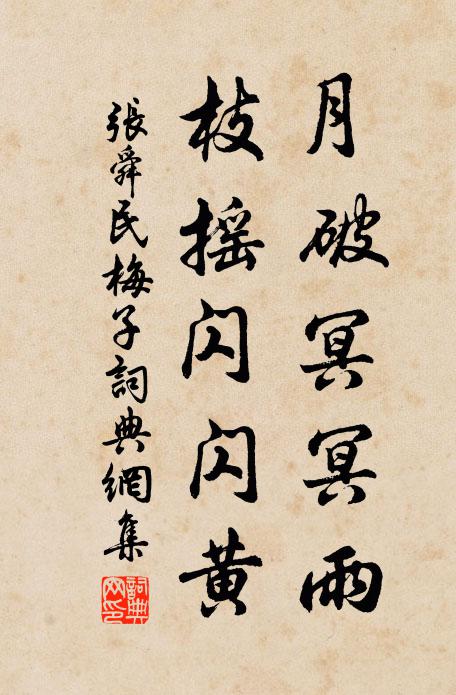 月破冥冥雨
枝摇閃閃黄
張舜民梅子詞典網集
詞典
网印